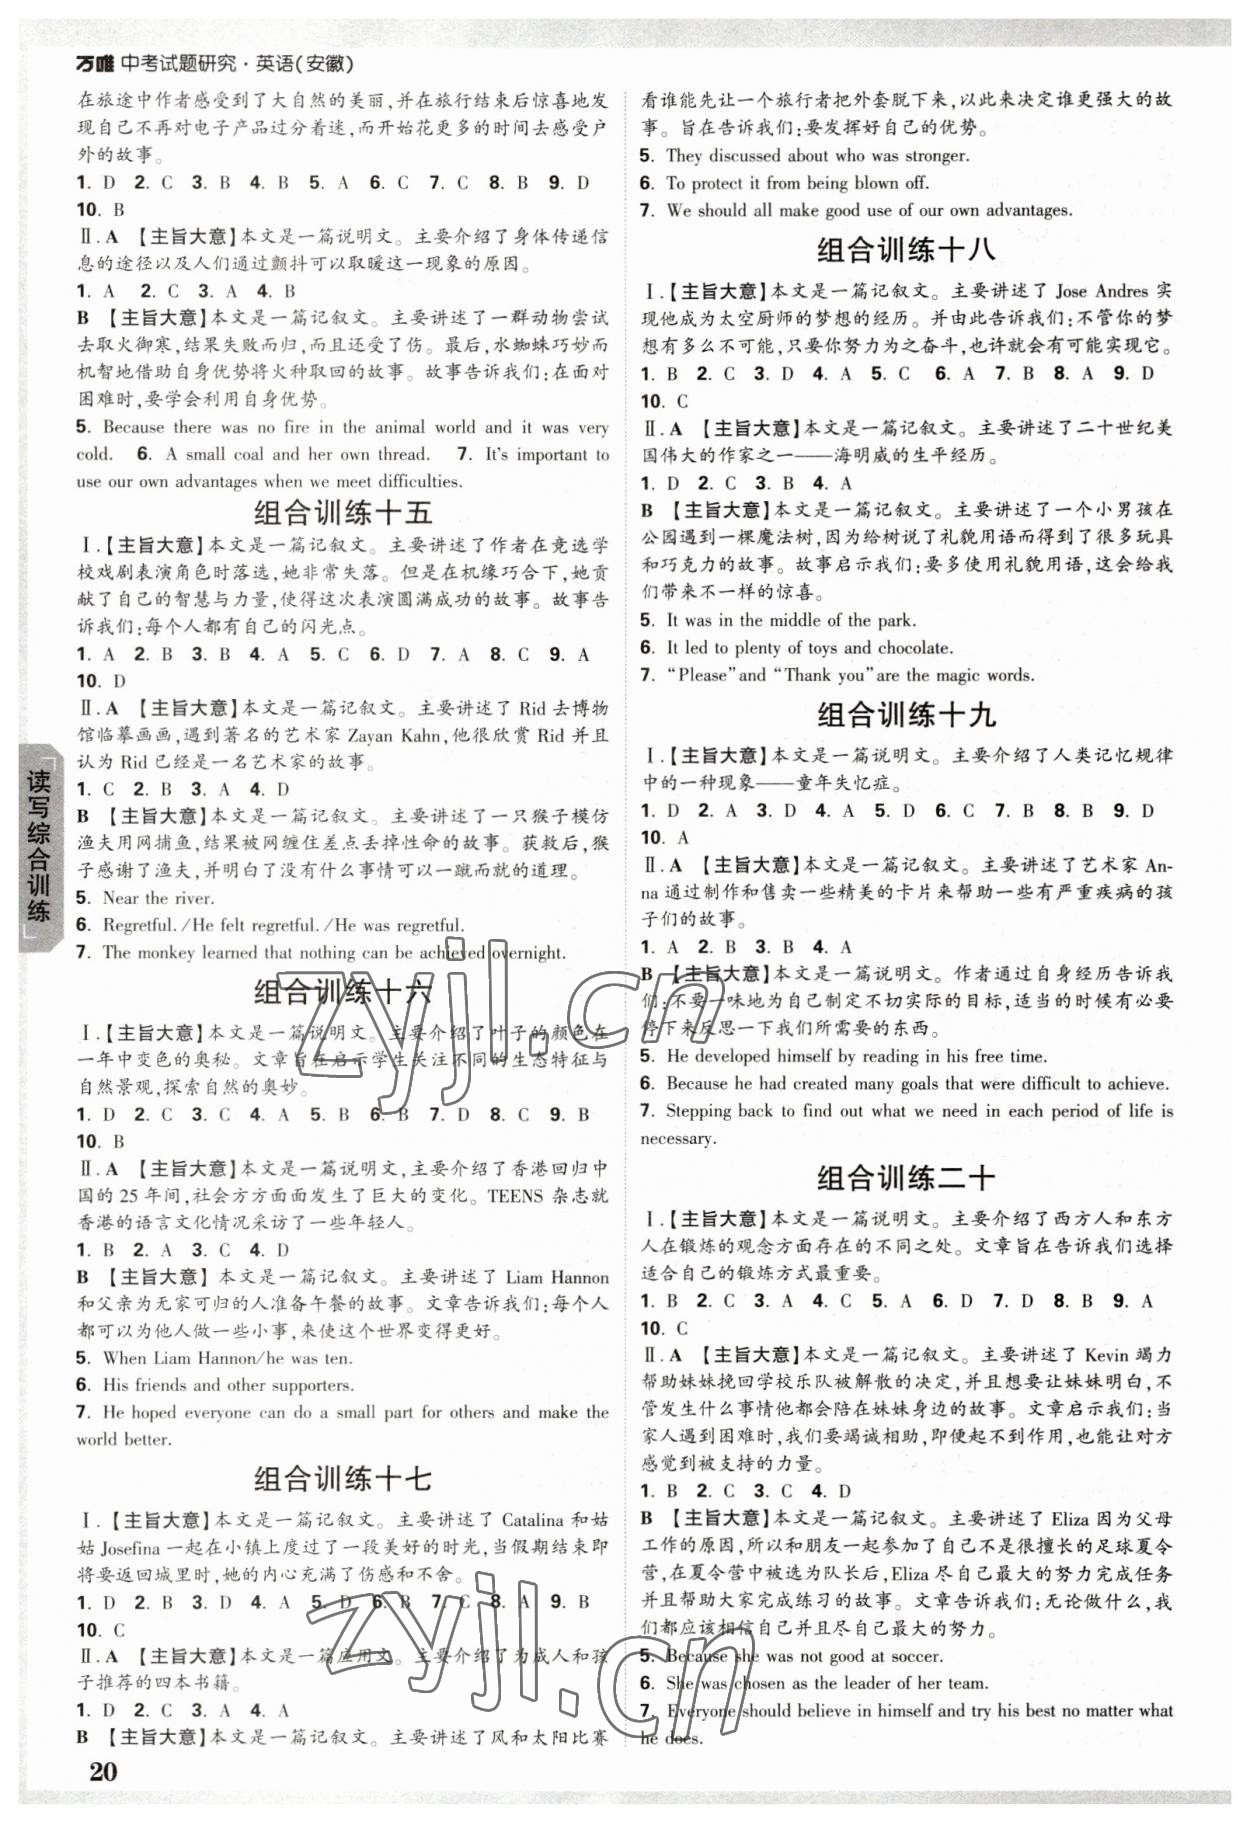 万唯 中考试题研究·英语(安徽)
在旅途中作者感受到了大自然的美丽,并在旅行结束后惊喜地发
现自己不再对电子产品过分着迷,而开始花更多的时间去感受户
外的故事。
1. D 2. C 3. B 4. B 5. A 6. C 7. C 8. B 9. D
10. B
Ⅱ. A 【主旨大意】本文是一篇说明文。主要介绍了身体传递信
息的途径以及人们通过颤抖可以取暖这一现象的原因。
1. A 2. C 3. A 4. B
B 【主旨大意】本文是一篇记叙文。主要讲述了一群动物尝试
去取火御寒,结果失败而归,而且还受了伤。最后,水蜘蛛巧妙而
机智地借助自身优势将火种取回的故事。故事告诉我们:在面对
困难时,要学会利用自身优势。
5. Because there was no fire in the animal world and it was very
cold. 6. A small coal and her own thread. 7. It's important to
use our own advantages when we meet difficulties.
组合训练十五
Ⅰ.【主旨大意】本文是一篇记叙文。主要讲述了作者在竞选学
校戏剧表演角色时落选,她非常失落。但是在机缘巧合下,她贡
献了自己的智慧与力量,使得这次表演圆满成功的故事。故事告
诉我们:每个人都有自己的闪光点。
1. A 2. B 3. B 4. A 5. C 6. D 7. A 8. C 9. A
10. D
Ⅱ. A 【主旨大意】本文是一篇记叙文。主要讲述了 Rid 去博物
馆临摹画画,遇到著名的艺术家 Zayan Kahn,他很欣赏 Rid 并且
认为 Rid 已经是一名艺术家的故事。
1. C 2. B 3. A 4. D
B 【主旨大意】本文是一篇记叙文。主要讲述了一只猴子模仿
渔夫用网捕鱼,结果被网缠住差点丢掉性命的故事。获救后,猴
子感谢了渔夫,并明白了什么事情都不是一蹴而就的道理。
5. Near the river.
6. Regretful. /He felt regretful. /He was regretful.
7. The monkey learned that nothing can be achieved overnight.
组合训练十六
Ⅰ.【主旨大意】本文是一篇说明文。主要介绍了叶子的颜色在
一年中变色的奥秘。文章旨在启示学生关注不同的生态特征与
自然景观,探索自然的奥妙。
1. D 2. C 3. A 4. C 5. B 6. B 7. D 8. C 9. B
10. B
Ⅱ. A 【主旨大意】本文是一篇说明文,主要介绍了香港回归中
国的 25 年间,社会方方面面发生了巨大的变化。TEENS 杂志就
香港的语言文化情况采访了一些年轻人。
1. B 2. A 3. C 4. D
B 【主旨大意】本文是一篇记叙文。主要讲述了 Liam Hannon
和父亲为无家可归的人准备午餐的故事。文章告诉我们:每个人
都可以为他人做一些小事,来使这个世界变得更好。
5. When Liam Hannon/he was ten.
6. His friends and other supporters.
7. He hoped everyone can do a small part for others and make the
world better.
组合训练十七
Ⅰ.【主旨大意】本文是一篇记叙文。主要讲述了 Catalina 和姑
姑 Josefina 一起在小镇上度过了一段美好的时光,当假期结束即
将要返回城里时,她的内心充满了伤感和不舍。
1. D 2. B 3. D 4. A 5. D 6. B 7. C 8. A 9. B
10. C
Ⅱ. A 【主旨大意】本文是一篇应用文。主要介绍了为成人和孩
子推荐的四本书籍。
1. D 2. C 3. A 4. A
B 【主旨大意】本文是一篇记叙文。主要讲述了风和太阳比赛
看谁能先让一个旅行者把外套脱下来,以此来决定谁更强大的故
事。旨在告诉我们:要发挥好自己的优势。
5. They discussed about who was stronger.
6. To protect it from being blown off.
7. We should all make good use of our own advantages.
组合训练十八
Ⅰ.【主旨大意】本文是一篇记叙文。主要讲述了 Jose Andres 实
现他成为太空厨师的梦想的经历。并由此告诉我们:不管你的梦
想有多么不可能,只要你努力为之奋斗,也许就会有可能实现它。
1. B 2. C 3. D 4. A 5. C 6. A 7. B 8. A 9. D
10. C
Ⅱ. A 【主旨大意】本文是一篇记叙文。主要讲述了二十世纪美
国伟大的作家之一——海明威的生平经历。
1. D 2. C 3. B 4. A
B 【主旨大意】本文是一篇记叙文。主要讲述了一个小男孩在
公园遇到一棵魔法树,因为给树说了礼貌用语而得到了很多玩具
和巧克力的故事。故事启示我们:要多使用礼貌用语,这会给我
们带来不一样的惊喜。
5. It was in the middle of the park.
6. It led to plenty of toys and chocolate.
7. “Please”and “Thank you”are the magic words.
组合训练十九
Ⅰ.【主旨大意】本文是一篇说明文。主要介绍了人类记忆规律
中的一种现象——童年失忆症。
1. D 2. A 3. D 4. A 5. D 6. C 7. B 8. B 9. D
10. A
Ⅱ. A 【主旨大意】本文是一篇记叙文。主要讲述了艺术家 An-
na 通过制作和售卖一些精美的卡片来帮助一些有严重疾病的孩
子们的故事。
1. A 2. B 3. C 4. A
B 【主旨大意】本文是一篇说明文。作者通过自身经历告诉我
们:不要一味地为自己制定不切实际的目标,适当的时候有必要
停下来反思一下我们所需要的东西。
5. He developed himself by reading in his free time.
6. Because he had created many goals that were difficult to achieve.
7. Stepping back to find out what we need in each period of life is
necessary.
组合训练二十
Ⅰ.【主旨大意】本文是一篇说明文。主要介绍了西方人和东方
人在锻炼的观念方面存在的不同之处。文章旨在告诉我们选择
适合自己的锻炼方式最重要。
1. B 2. C 3. A 4. C 5. A 6. D 7. D 8. B 9. A
10. C
Ⅱ. A 【主旨大意】本文是一篇记叙文。主要讲述了 Kevin 竭力
帮助妹妹挽回学校乐队被解散的决定,并且想要让妹妹明白,不
管发生什么事情他都会陪在妹妹身边的故事。文章启示我们:当
家人遇到困难时,我们要竭诚相助,即便起不到作用,也能让对方
感觉到被支持的力量。
1. B 2. C 3. C 4. D
B 【主旨大意】本文是一篇记叙文。主要讲述了 Eliza 因为父母
工作的原因,所以和朋友一起参加了自己不是很擅长的足球夏令
营,在夏令营中被选为队长后,Eliza 尽自己最大的努力完成任务
并且帮助大家完成练习的故事。文章告诉我们:无论做什么,我
们都应该相信自己并尽自己最大的努力。
5. Because she was not good at soccer.
6. She was chosen as the leader of her team.
7. Everyone should believe in himself and try his best no matter what
he does.
读写综合训练
20
zyjl.cn
zyjl.cn